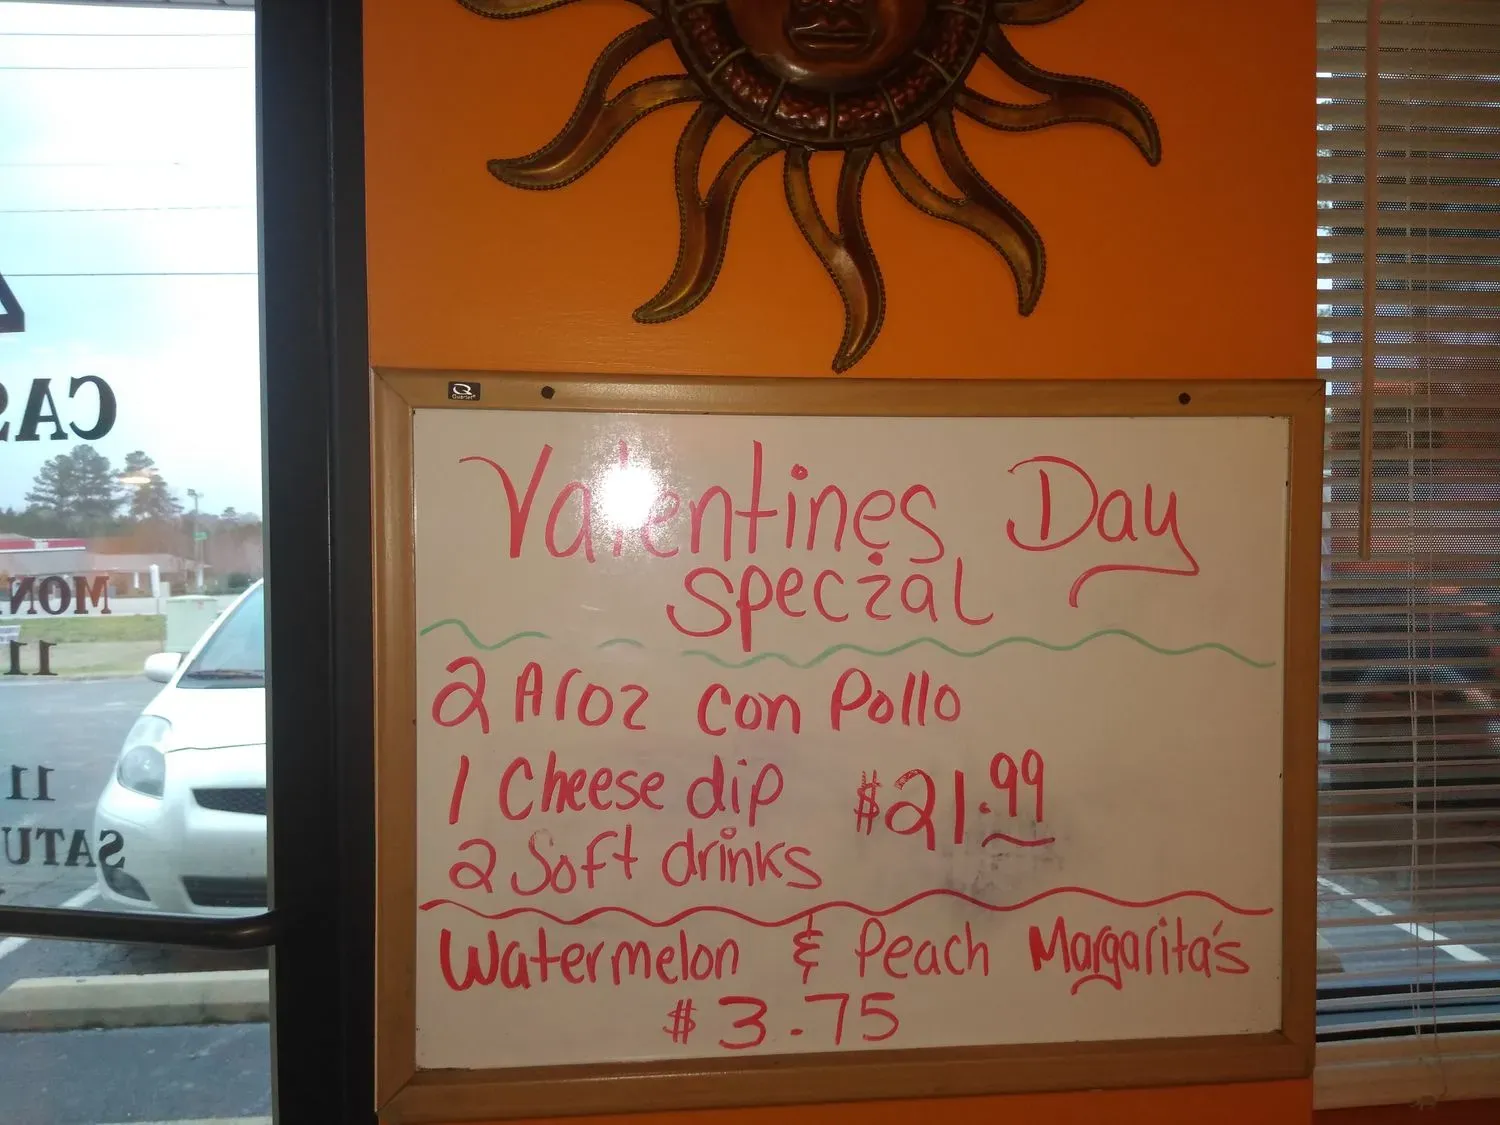 Quartet
Valentines Day
special
2 Aroz con Pollo
1 Cheese dip
$21.99
2 Soft drinks
Watermelon & Peach Margarita's
$3.75
4
CAS
MON
11
11
SATU